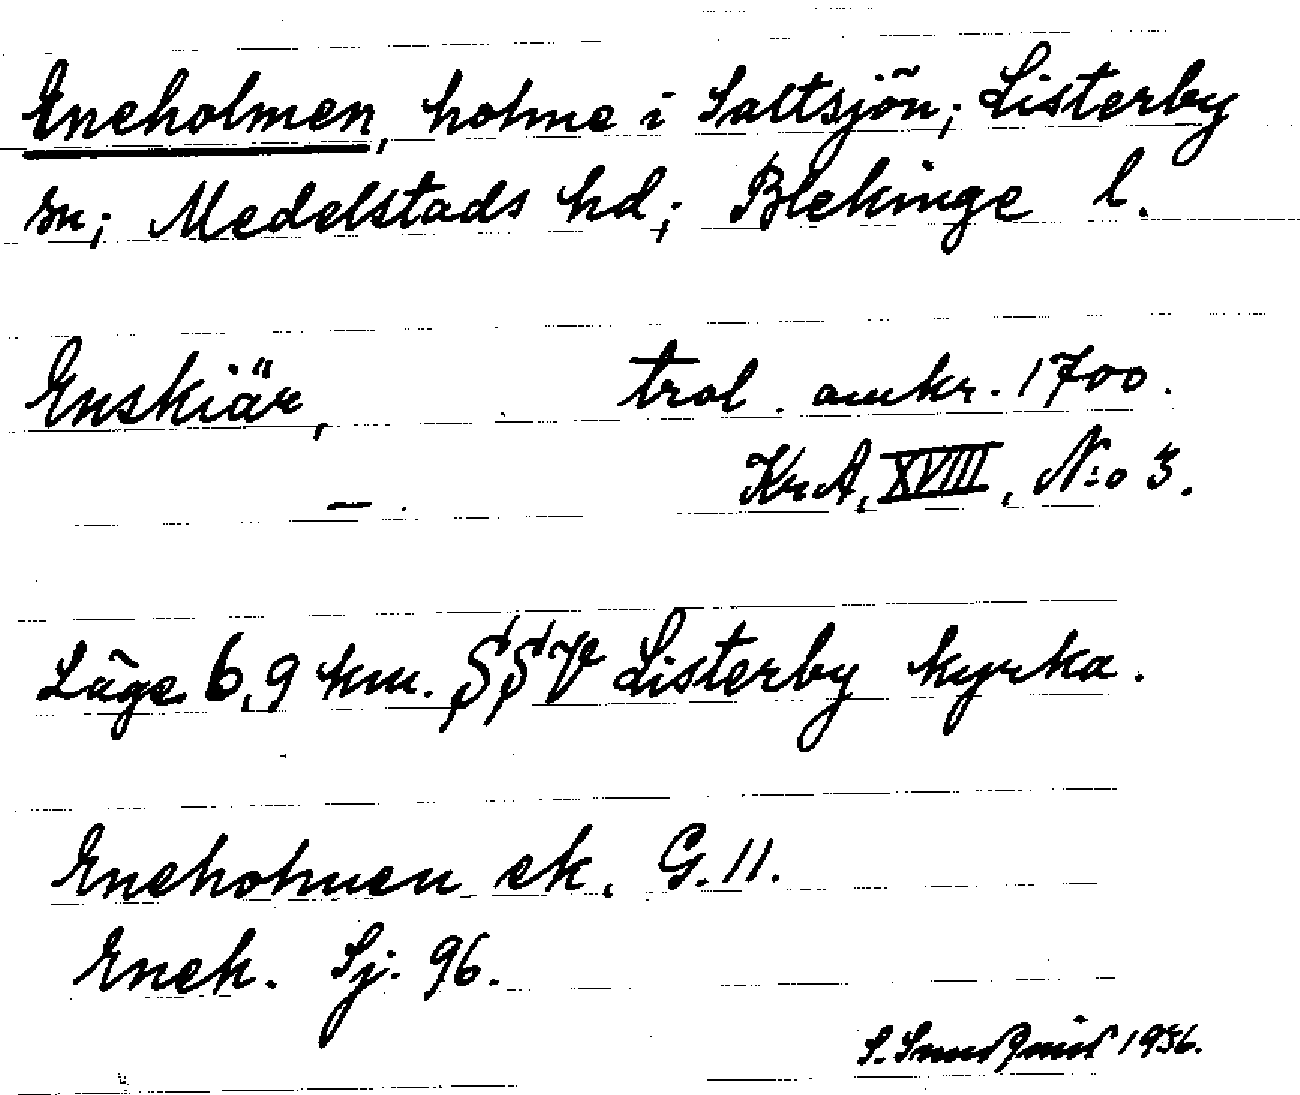 Eneholmen, holme i Saltsjön; Listerby
sn; Medelstads hd; Blekinge l.
Enskiär, trol. omkr. 1700.
— . KrA, XVIII, N:o 3.
Läge 6,9 km. SSV Listerby kyrka.
Eneholmen ek. G. 11.
Eneh. Sj. 96.
S. 1936.